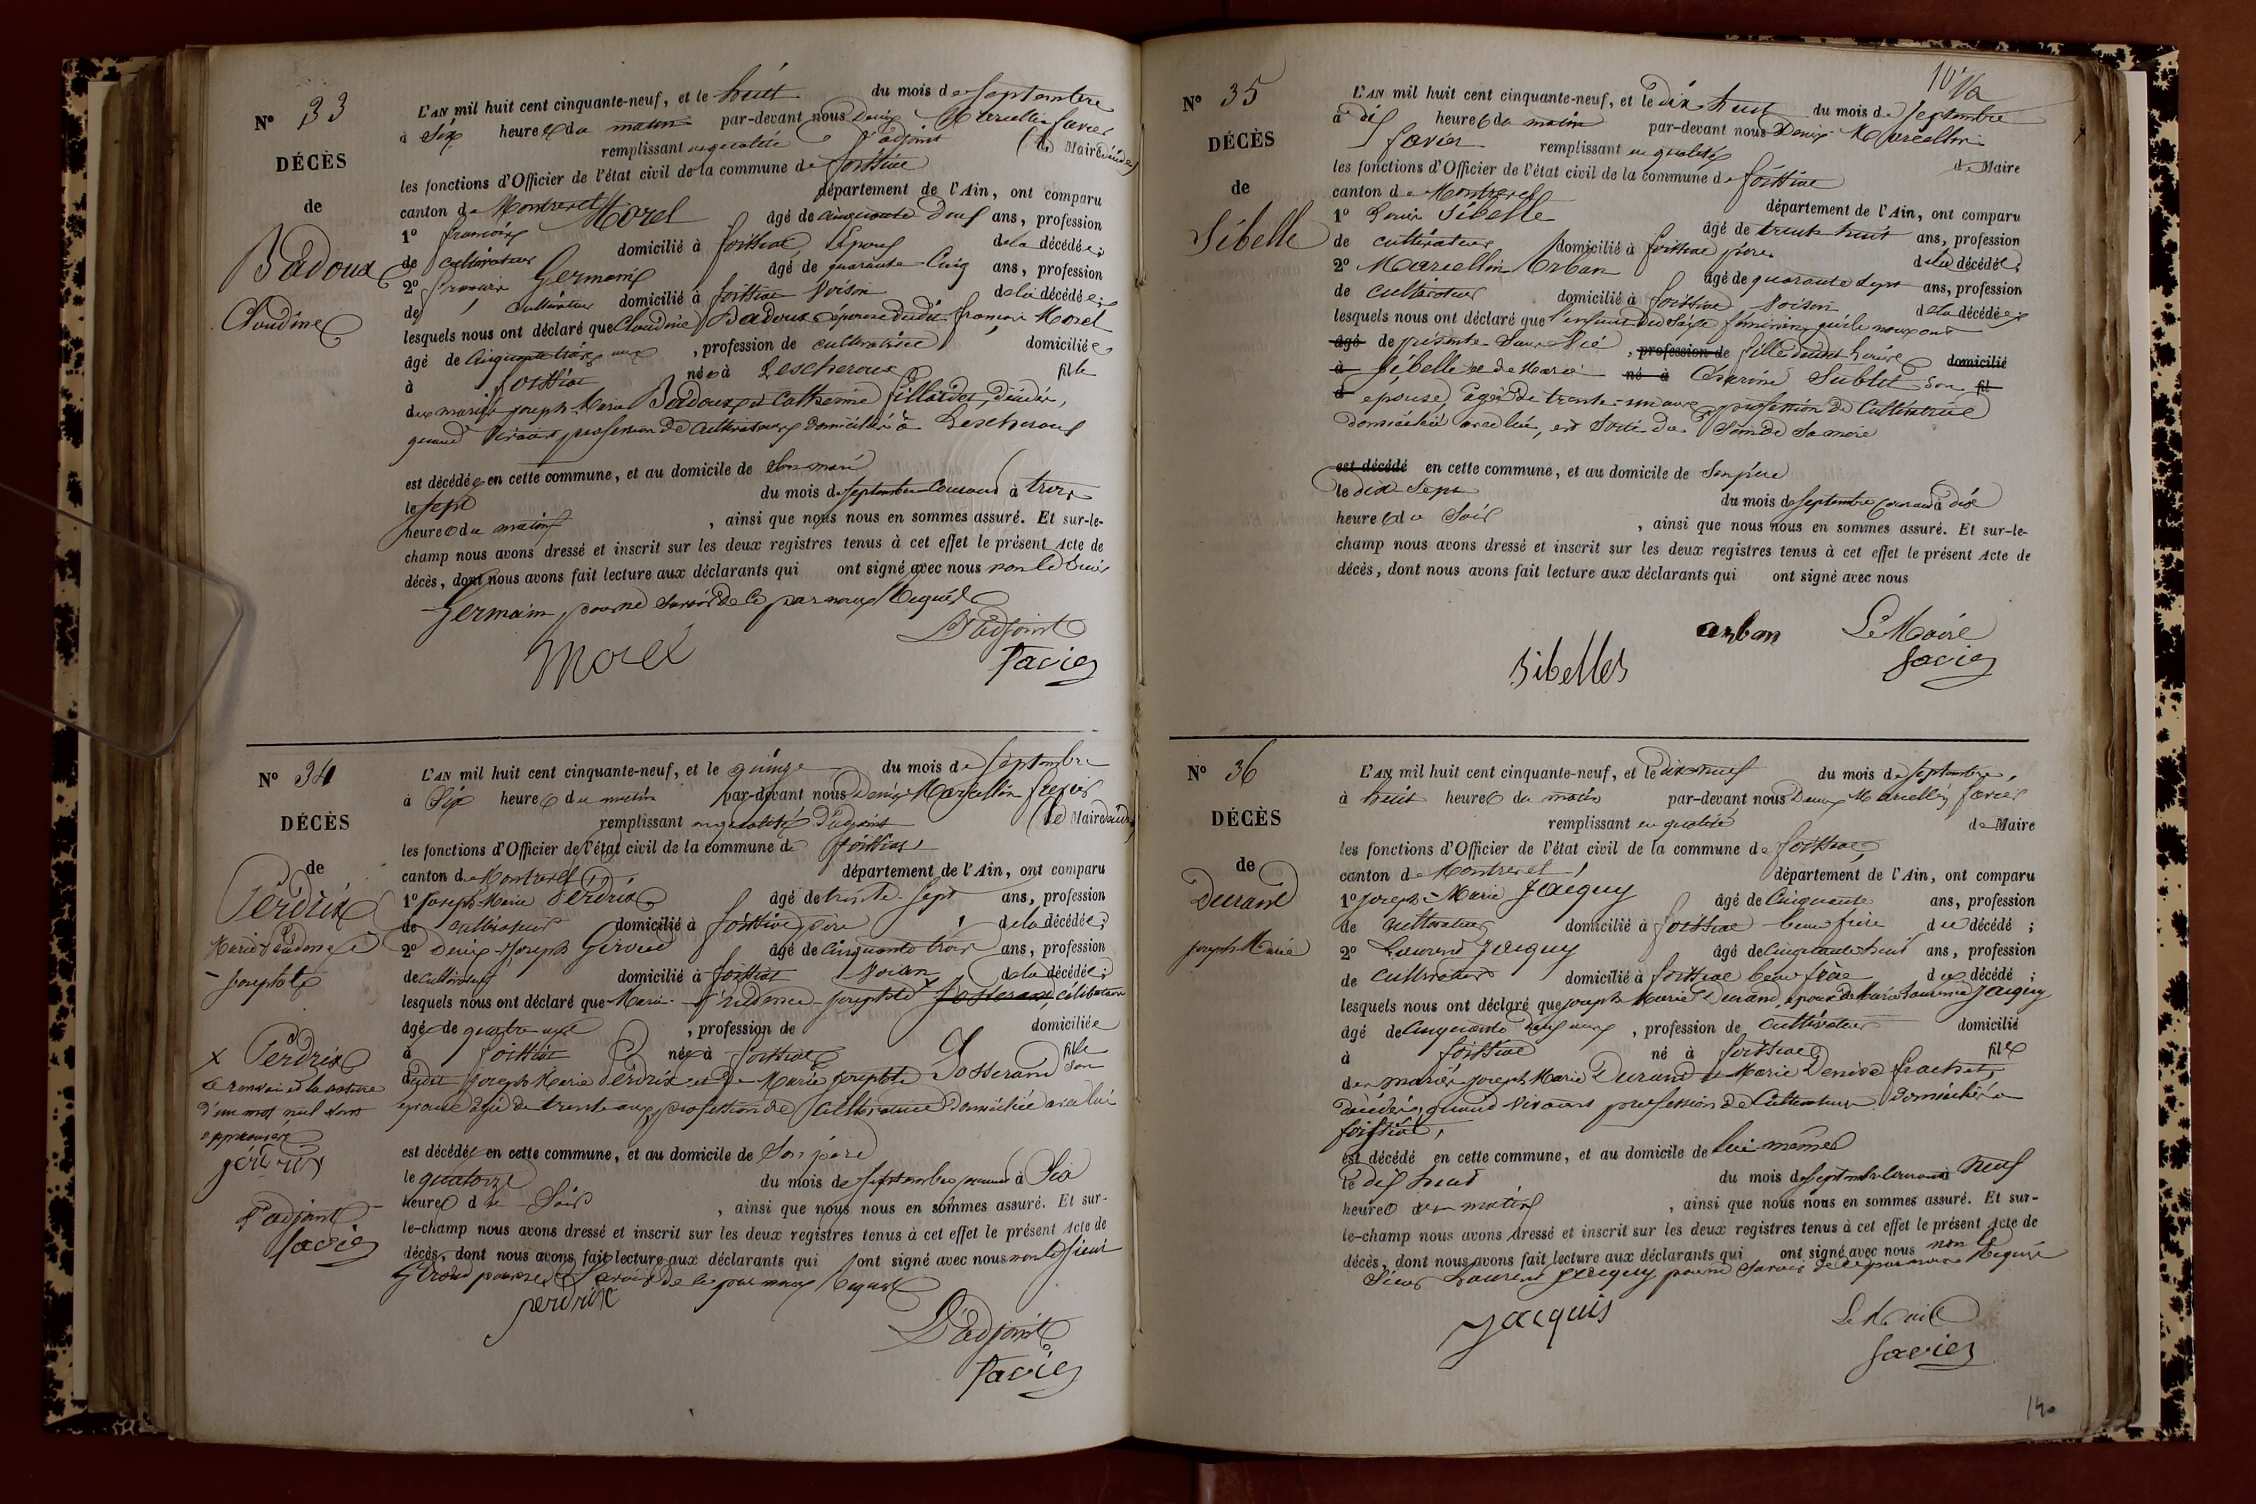 N° 33
DÉCÈS
de
Badoux
Claudine
L'AN mil huit cent cinquante-neuf, et le huit du mois de Septembre
à Six heures du matin par-devant nous Denis Marcellin Favier
remplissant en qualité d'adjoint (le Maire décédé)
les fonctions d'Officier de l'état civil de la commune de foissiat
canton de Montrevel département de l'Ain, ont comparu
1° françois Morel âgé de cinquante Deux ans, profession
de cultivateur domicilié à foissiat, Epoux de la décédée;
2° Germain âgé de quarante-Cinq ans, profession
de cultivateur domicilié à foissiat Voisin de la décédée;
lesquels nous ont déclaré que Claudine Badoux épouse dudit françois Morel
âgée de Cinquante trois ans , profession de cultivatrice domiciliée
à foissiat née à Lescheroux fille
des mariés joseph-Marie Badoux et Catherine décédés,
quand vivaient profession de cultivateurs domiciliés à Lescheroux
est décédée en cette commune, et au domicile de Son mari
le sept du mois de Septembre Courant à trois
heures du matin , ainsi que nous nous en sommes assuré. Et sur-le-
champ nous avons dressé et inscrit sur les deux registres tenus à cet effet le présent Acte de
décès, dont nous avons fait lecture aux déclarants qui ont signé avec nous non le Sieur
Germain pour ne savoir de ce par nous Requis
L'adjoint
Morel Favier
N° 34
DÉCÈS
de
Perdrix
Marie Prudence
Josephte
x Perdrix
Ce renvoi et la rature
d'un mot nul sont
approuvés
perdrix
L'adjoint
Favier
L'AN mil huit cent cinquante-neuf, et le quinze du mois de Septembre
à Six heures du matin par-devant nous Denis Marcellin Favier
remplissant en qualité d'adjoint (le Maire décédé)
les fonctions d'Officier de l'état civil de la commune de foissiat
canton de Montrevel département de l'Ain, ont comparu
1° Joseph Marie Perdrix âgé de trente-Sept ans, profession
de cultivateur domicilié à foissiat, père de la décédée;
2° Denis-Joseph Giroud âgé de Cinquante trois ans, profession
de cultivateur domicilié à foissiat Voisin de la décédée;
lesquels nous ont déclaré que Marie-Prudence-Josephte x Josserand, célibataire
âgée de quatre ans , profession de domiciliée
à foissiat née à foissiat fille
dudit Joseph Marie Perdrix et de Marie Josephte Josserand Son
épouse âgée de trente ans, profession de Cultivatrice domiciliée avec lui
est décédée en cette commune, et au domicile de Son père
le quatorze du mois de Septembre courant à Six
heures du Soir , ainsi que nous nous en sommes assuré. Et sur-
le-champ nous avons dressé et inscrit sur les deux registres tenus à cet effet le présent Acte de
décès, dont nous avons fait lecture aux déclarants qui ont signé avec nous non le Sieur
Giroud pour ne Savoir de ce par nous Requis
perdrix
L'adjoint
Favier
N° 35
DÉCÈS
de
Sibelle
L'AN mil huit cent cinquante-neuf, et le dix huit du mois de Septembre
à dix heures du matin par-devant nous Denis Marcellin
Favier remplissant en qualité de Maire
les fonctions d'Officier de l'état civil de la commune de foissiat
canton de Montrevel département de l'Ain, ont comparu
1° Louis Sibelle âgé de trente huit ans, profession
de cultivateur domicilié à foissiat père de la décédée;
2° Marcellin Orban âgé de quarante Sept ans, profession
de cultivateur domicilié à foissiat Voisin de la décédée;
lesquels nous ont déclaré que l'enfant du Sexe féminin, qu'ils nous ont
âgé de présenté Sans Vie , profession de fille dudit Louis domicilié
à Sibelle et de Marie né à Sublet Son fil
d épouse, âgée de trente-un ans, profession de Cultivatrice
domiciliée avec lui, est Sorti du Sein de Sa mère
est décédé en cette commune, et au domicile de Son père
le dix Sept du mois de Septembre courant à dix
heures du Soir , ainsi que nous nous en sommes assuré. Et sur-le-
champ nous avons dressé et inscrit sur les deux registres tenus à cet effet le présent Acte de
décès, dont nous avons fait lecture aux déclarants qui ont signé avec nous
Le Maire
Sibelles Favier
N° 36
DÉCÈS
de
Durand
Joseph Marie
L'AN mil huit cent cinquante-neuf, et le dix neuf du mois de Septembre,
à huit heures du matin par-devant nous Denis Marcellin Favier
remplissant en qualité de Maire
les fonctions d'Officier de l'état civil de la commune de foissiat
canton de Montrevel, département de l'Ain, ont comparu
1° Joseph-Marie Jacquy âgé de Cinquante ans, profession
de cultivateur domicilié à foissiat beau frère du décédé ;
2° Laurent Jacquy âgé de Cinquante huit ans, profession
de Cultivateur domicilié à foissiat beau frère du décédé ;
lesquels nous ont déclaré que joseph Marie Durand, époux de Marie Laurence Jacquy
âgé de Cinquante neuf ans , profession de cultivateur domicilié
à foissiat né à foissiat fils
des mariés joseph Marie Durand et Marie Denise
décédés, quand Vivaient profession de Cultivateurs domiciliés à
foissiat,
est décédé en cette commune, et au domicile de lui même
le dix huit du mois de Septembre Courant à neuf
heures du matin , ainsi que nous nous en sommes assuré. Et sur-
le-champ nous avons dressé et inscrit sur les deux registres tenus à cet effet le présent Acte de
décès, dont nous avons fait lecture aux déclarants qui ont signé avec nous non le
Sieur Laurent Jacquy pour ne Savoir de ce par nous Requis
Jacquis
Le Maire
Favier